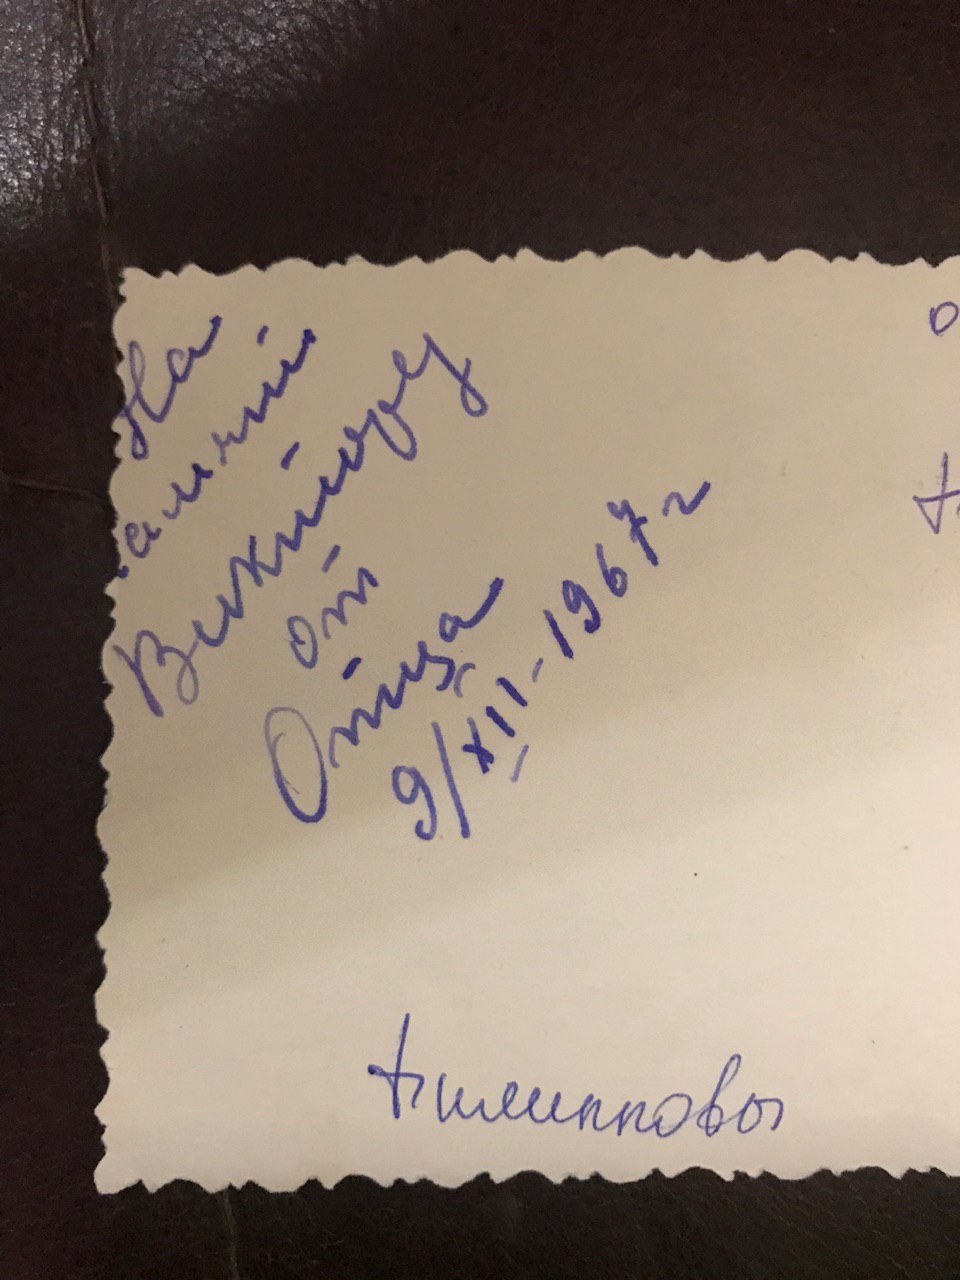 На
амятй
Виктору
от
Отца
9/XII-1967 г
Филипповы
о